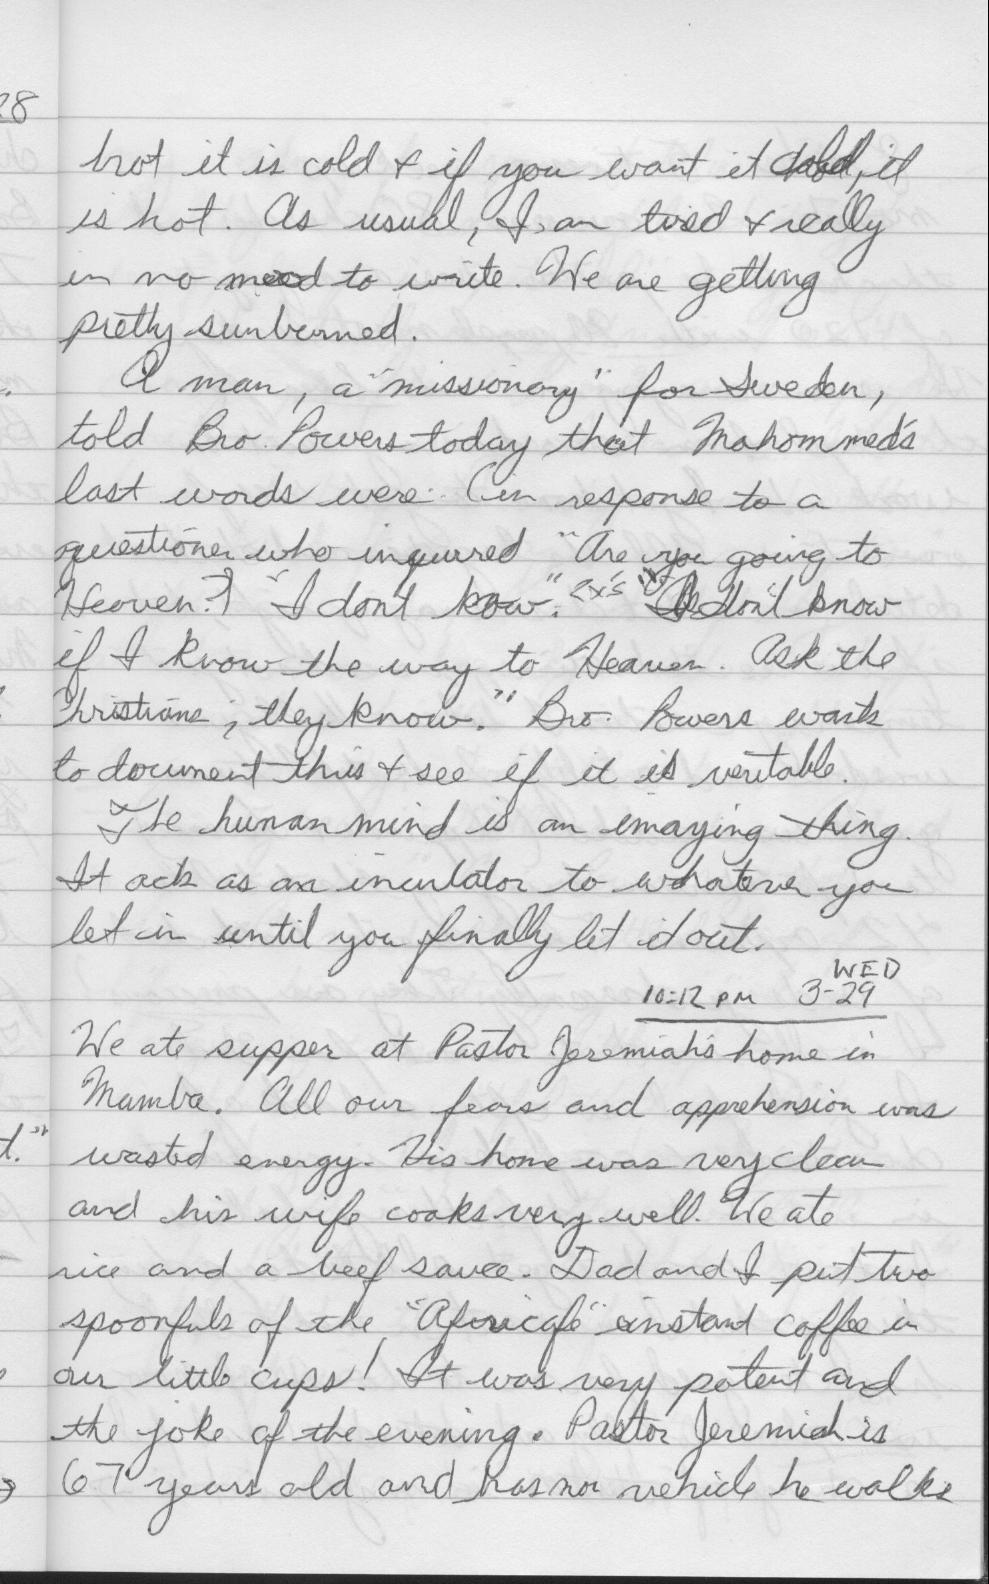 28
hot it is cold & if you want it cold, it
is hot. As usual, I am tired & really
in no mood to write. We are getting
pretty sunburned.
A man, a "missionary" for Sweden,
told Bro. Powers today that Mahommed's
last words were: (in response to a
questioner who inquired "Are you going to
Heaven?) "I don't know". 2x's "I don't know
if I know the way to Heaven. Ask the
Christians; they know." Bro. Powers wants
to document this & see if it is veritable.
The human mind is an imazing thing.
It acts as an inculator to whatever you
let in until you finally let it out.
WED
10:12 PM 3-29
We ate supper at Pastor Jeremiah's home in
Mamba. All our fears and apprehension was
t."
wasted energy. His home was very clean
and his wife cooks very well. We ate
rice and a beef sauce. Dad and I put two
spoonfuls of the "Africafe" instant coffee in
our little cups! It was very potent and
the joke of the evening. Pastor Jeremiah is
67 years old and has no vehicle he walks